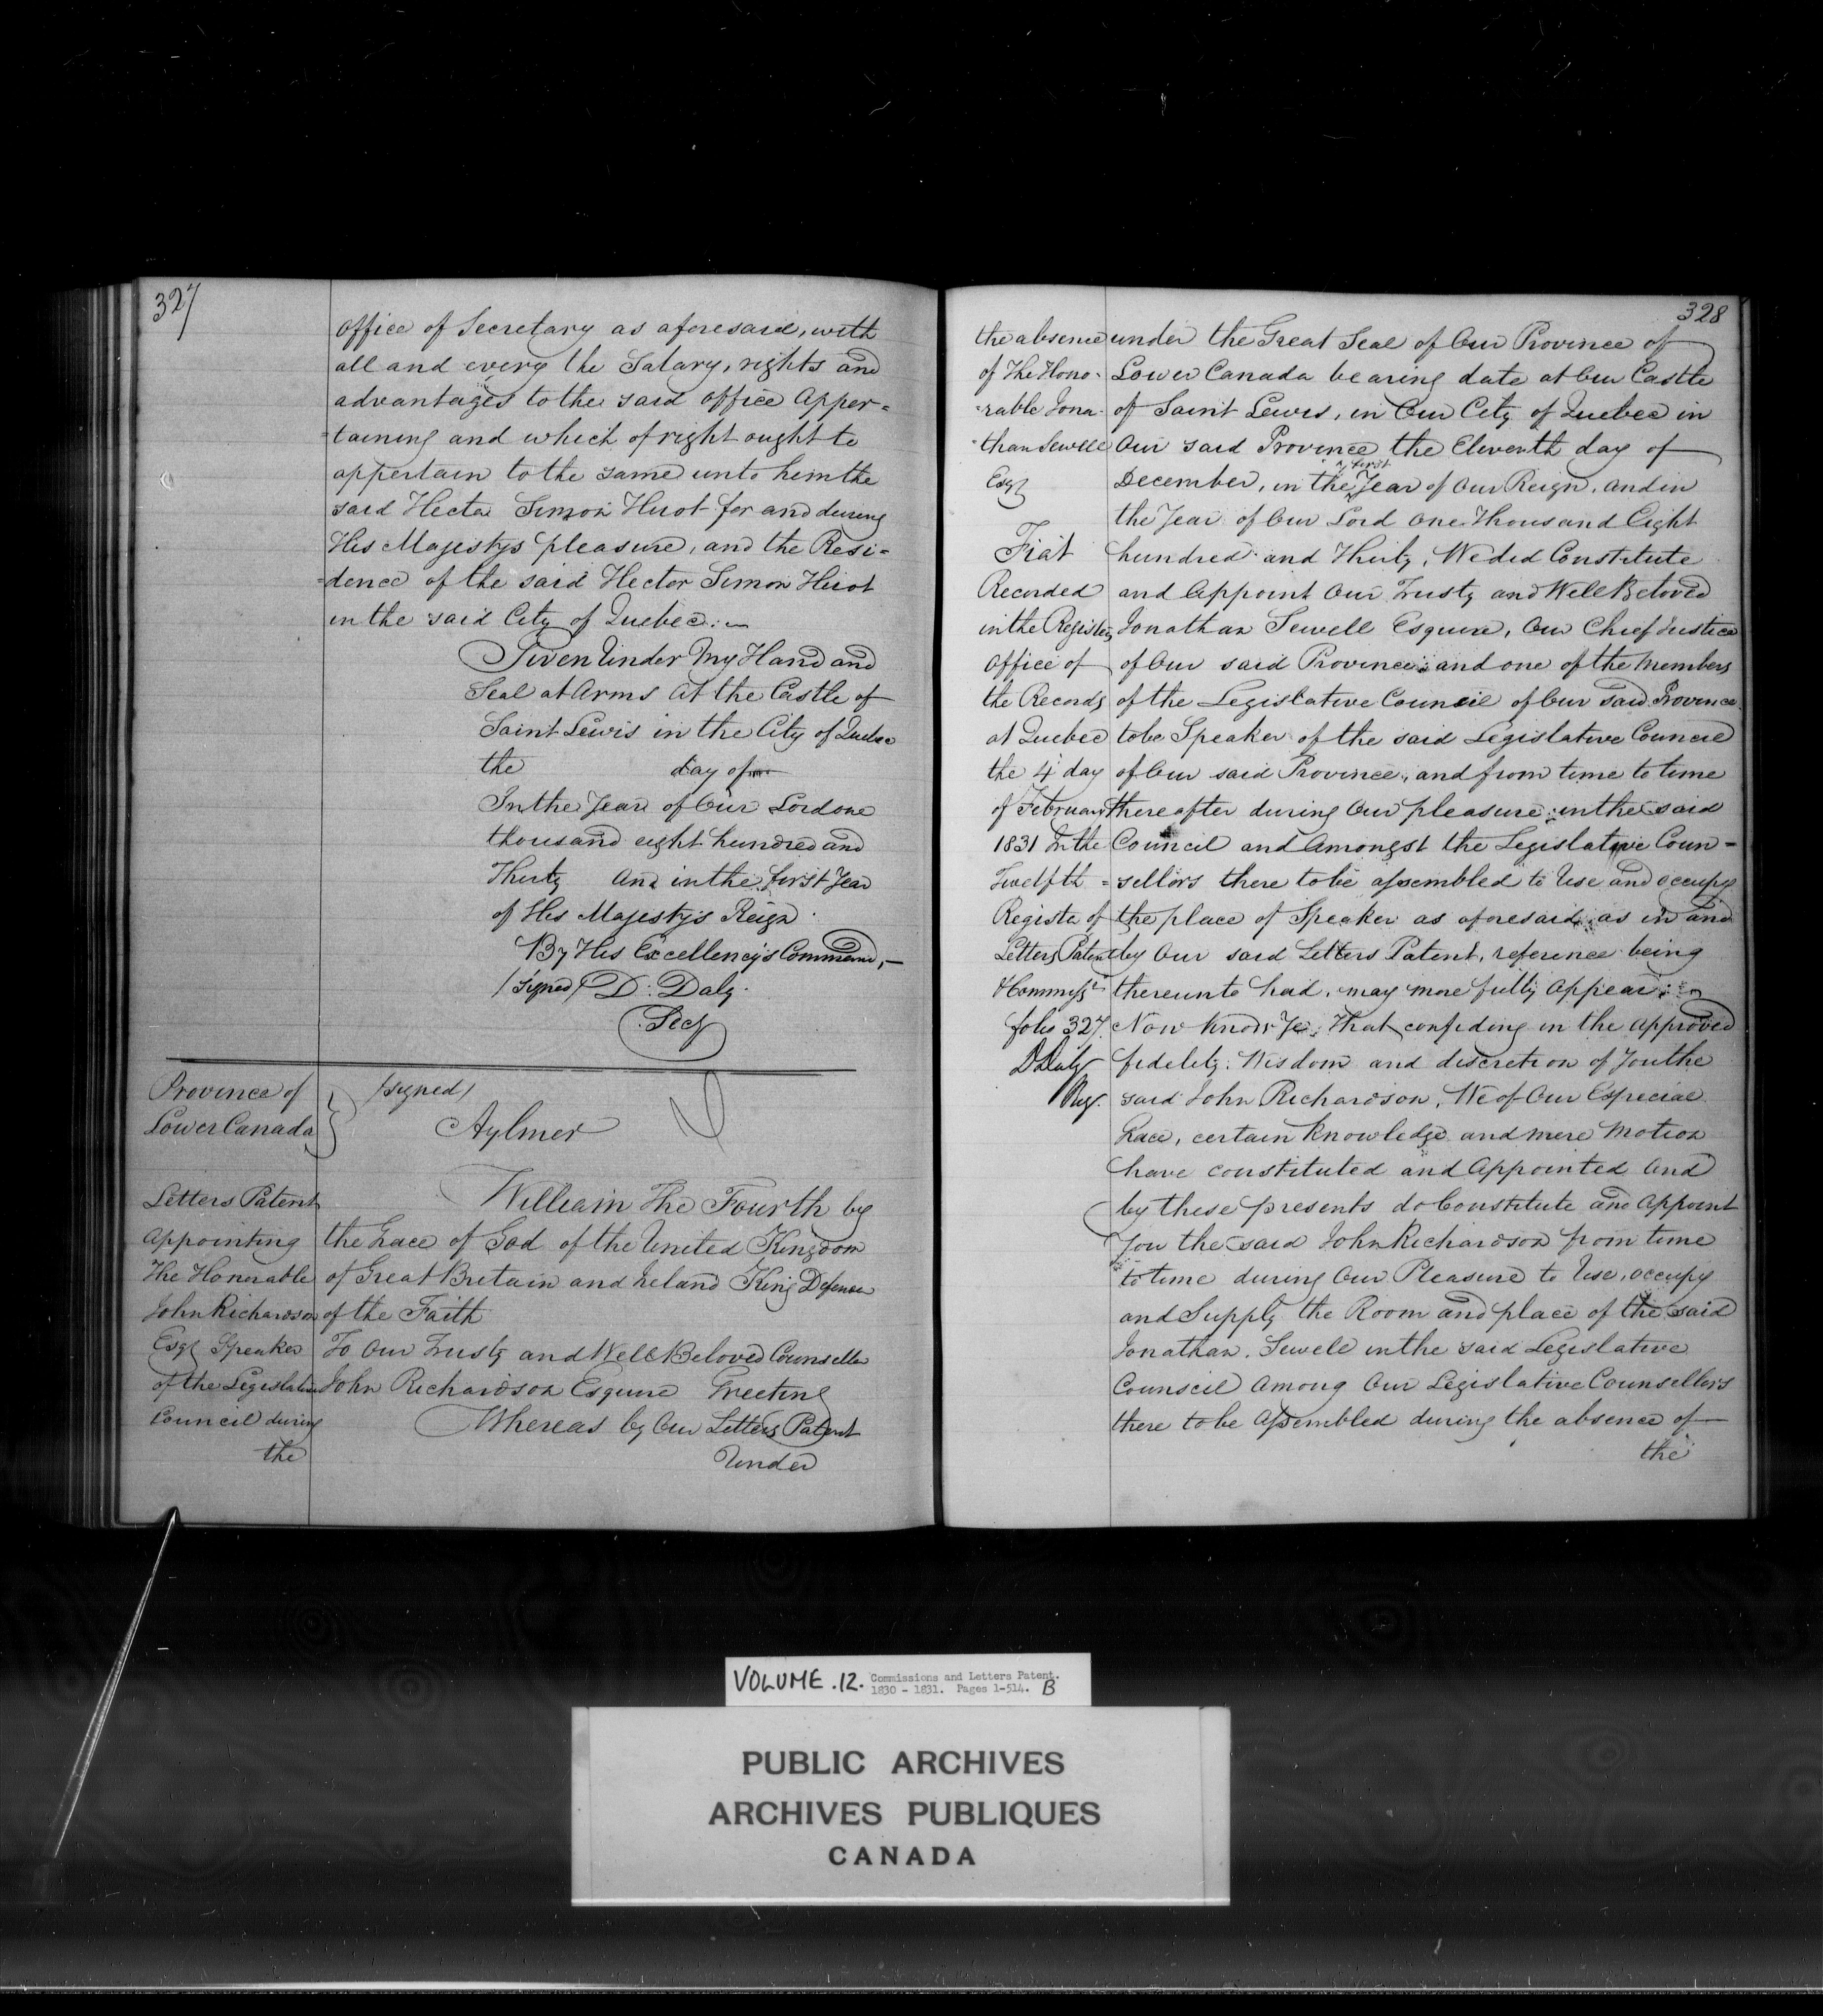 327
office of Secretary as aforesaid, with
all and every the Salary, rights and
advantages to the said office Apper=
=taining and which of right ought to
appertain to the same unto him the
said Hector Simon Huot for and during
His Majestys pleasure, and the Resi=
=dence of the said Hector Simon Huot
in the said City of Quebec.
Given Under My Hand and
Seal at Arms at the Castle of
Saint Lewis in the City of Quebec
the day of
In the Year of Our Lord one
thousand eight hundred and
Thirty And in the first Year
of His Majesty's Reign.
By His Excellency's Command,
/signed/ D. Daly.
Secy
Province of
Lower Canada
/signed/
Aylmer
Letters Patent
Appointing
The Honorable
John Richardson
Esqr Speaker
of the Legislative
Council during
the
William The Fourth by
the Grace of God of the United Kingdom
of Great Britain and Ireland King Defender
of the Faith
To Our Trusty and Well Beloved Counsellor
John Richardson Esquire Greeting
Whereas by Our Letters Patent
Under
328
the absence
of The Hono-
-rable Jona-
-than Sewell
Esqr
Fiat
Recorded
in the Registers
Office of
the Records
at Quebec
the 4 day
of February
1831 In the
Twelfth
Register of
Letters Patent
&
folio 327.
D Daly
Reg.
under the Great Seal of Our Province of
Lower Canada bearing date at Our Castle
of Saint Lewis, in Our City of Quebec in
Our said Province the Eleventh day of
December, in the first Year of Our Reign, and in
the Year of Our Lord One Thousand Eight
hundred and Thirty, We did Constitute
and Appoint Our Trusty and Well Beloved
Jonathan Sewell Esquire, Our Chief Justice
of Our said Province, and one of the Members
of the Legislative Council of Our said Province
to be Speaker of the said Legislative Council
of Our said Province, and from time to time
thereafter during Our pleasure in the said
Council and Amongst the Legislative Coun=
=sellors there to be assembled to Use and occupy
the place of Speaker as aforesaid, as in and
by Our said Letters Patent, reference being
thereunto had, may more fully Appear:
Now Know Ye, That confiding in the approved
fidelity, Wisdom and discretion of You the
said John Richardson, We of Our Especial
Grace, certain Knowledge and mere Motion
have constituted and Appointed And
by these presents do Constitute and Appoint
You the said John Richardson from time
to time during Our Pleasure to Use, occupy
and Supply the Room and place of the said
Jonathan Sewell in the said Legislative
Council Among Our Legislative Counsellors
there to be Assembled during the absence of
the
VOLUME.12. Commissions and Letters Patent.
1830 - 1831. Pages 1-514. B
PUBLIC ARCHIVES
ARCHIVES PUBLIQUES
CANADA